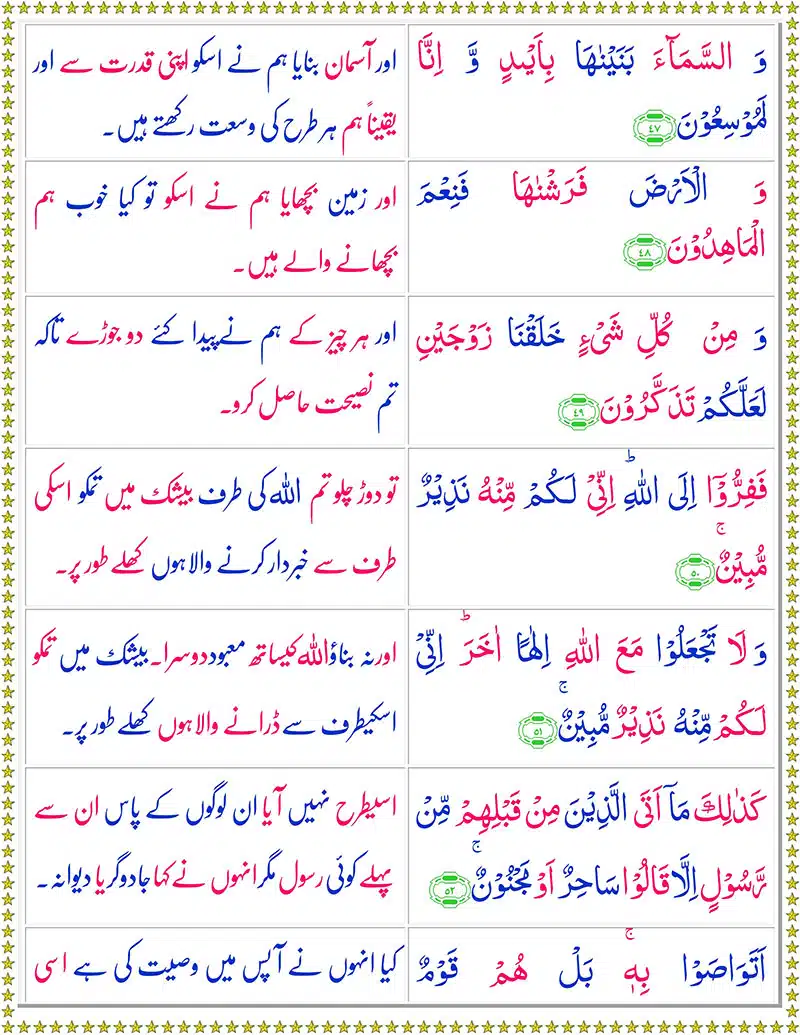 وَ السَّمَآءَ بَنَيْنٰهَا بِاَيْىدٍ وَّ اِنَّا
لَمُوْسِعُوْنَ ﴿۴۷﴾
اور آسمان بنایا ہم نے اسکو اپنی قدرت سے اور
یقیناً ہم ہر طرح کی وسعت رکھتے ہیں۔
وَ الْاَرْضَ فَرَشْنٰهَا فَنِعْمَ
الْمَاهِدُوْنَ ﴿۴۸﴾
اور زمین بچھایا ہم نے اسکو تو کیا خوب ہم
بچھانے والے ہیں۔
وَ مِنْ كُلِّ شَیْءٍ خَلَقْنَا زَوْجَيْنِ
لَعَلَّكُمْ تَذَكَّرُوْنَ ﴿۴۹﴾
اور ہر چیز کے ہم نے پیدا کئے دو جوڑے تاکہ
تم نصیحت حاصل کرو۔
فَفِرُّوْۤا اِلَى اللّٰهِ ؕ اِنِّیْ لَكُمْ مِّنْهُ نَذِيْرٌ
مُّبِيْنٌ ۚ ﴿۵۰﴾
تو دوڑ چلو تم اللہ کی طرف بیشک میں تمکو اسکی
طرف سے خبردار کرنے والا ہوں کھلے طور پر۔
وَ لَا تَجْعَلُوْا مَعَ اللّٰهِ اِلٰهًا اٰخَرَ ؕ اِنِّیْ
لَكُمْ مِّنْهُ نَذِيْرٌ مُّبِيْنٌ ۚ ﴿۵۱﴾
اور نہ بناؤ اللہ کیساتھ معبود دوسرا۔ بیشک میں تمکو
اسکیطرف سے ڈرانے والا ہوں کھلے طور پر۔
كَذٰلِكَ مَاۤ اَتَى الَّذِيْنَ مِنْ قَبْلِهِمْ مِّنْ
رَّسُوْلٍ اِلَّا قَالُوْا سَاحِرٌ اَوْ مَجْنُوْنٌ ۚ ﴿۵۲﴾
اسیطرح نہیں آیا ان لوگوں کے پاس ان سے
پہلے کوئی رسول مگر انہوں نے کہا جادوگر یا دیوانہ۔
اَتَوَاصَوْا بِهٖ ۚ بَلْ هُمْ قَوْمٌ
کیا انہوں نے آپس میں وصیت کی ہے اسی